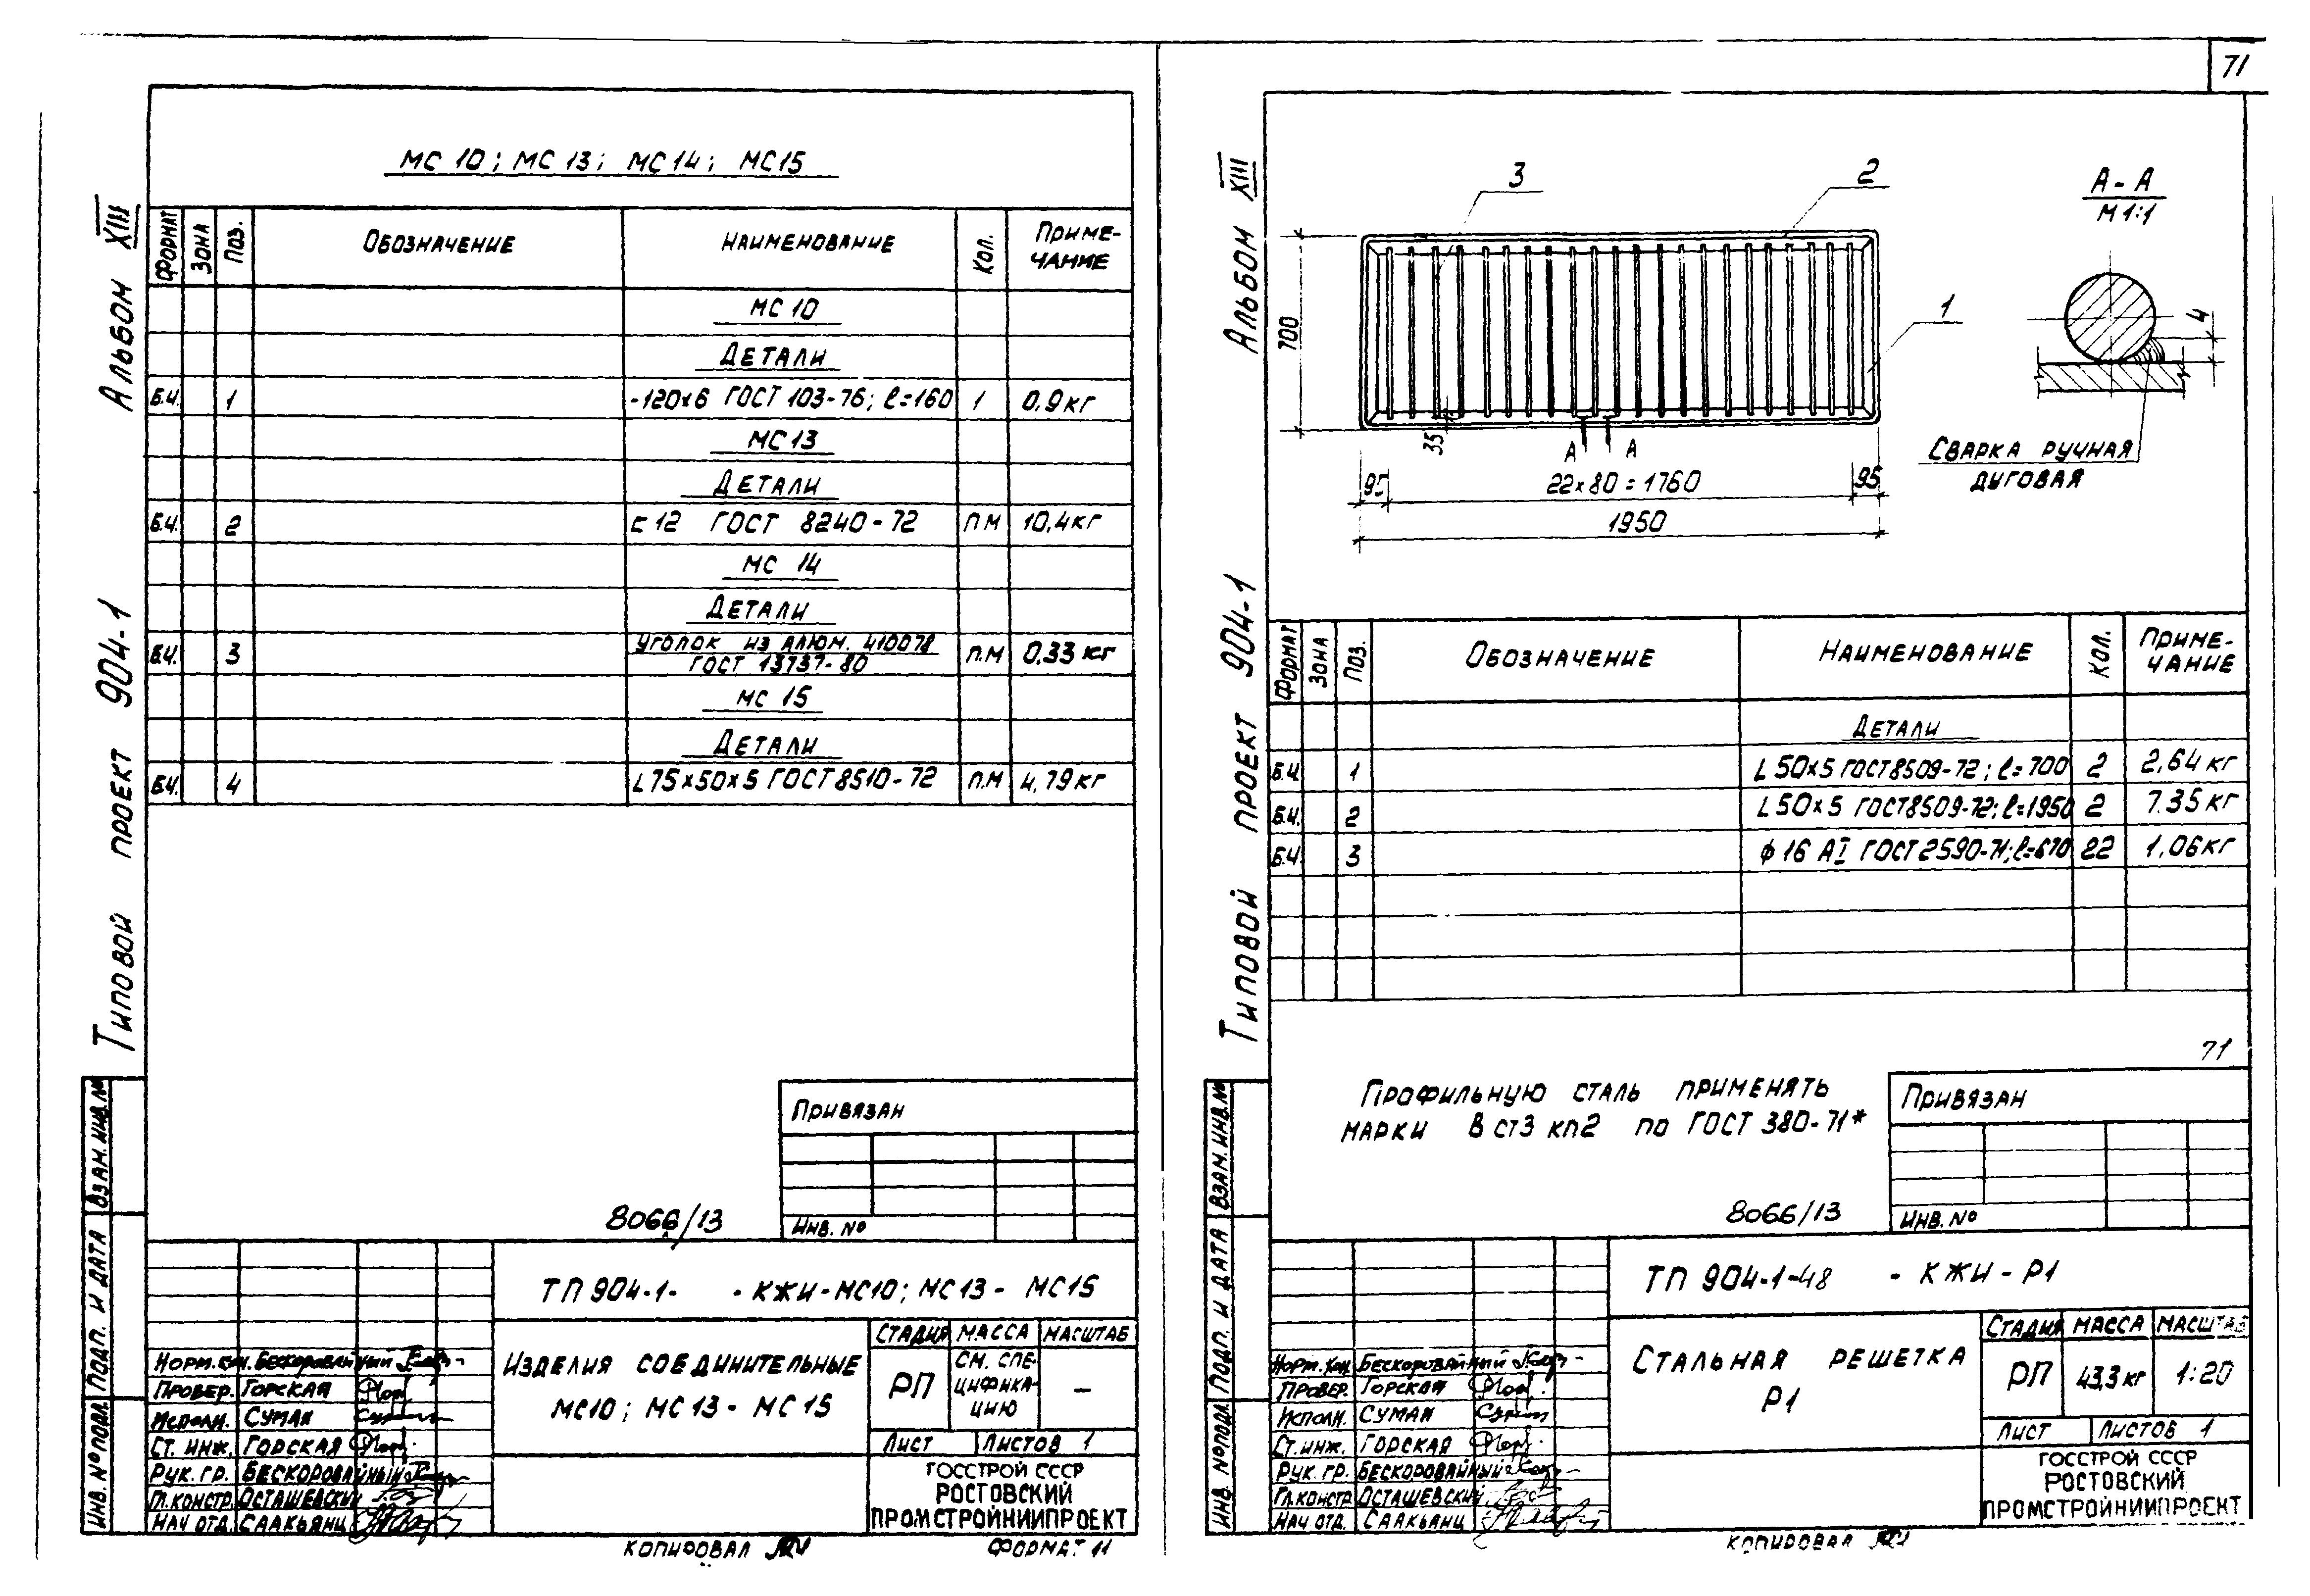 71
Альбом XIII
Типовой проект 904-1
МС 10; МС 13; МС 14; МС15
Формат Зона Поз. Обозначение Наименование Кол. Приме-
чание
МС 10
Детали
Б.Ч. 1 -120х6 ГОСТ 103-76; ℓ=160 1 0,9 кг
МС 13
Детали
Б.Ч. 2 ⊏ 12 ГОСТ 8240-72 П.М 10,4 кг
МС 14
Детали
Б.Ч. 3 Уголок из алюм. 410078
ГОСТ 13737-80 П.М 0,33 кг
МС 15
Детали
Б.Ч. 4 L 75х50х5 ГОСТ 8510-72 П.М 4,79 кг
Привязан
Инв. №
8066/13
Взам. инв. №
Подп. и дата
Инв. № подл.
ТП 904-1- - КЖИ-МС10; МС13- МС15
Изделия соединительные
МС10; МС13- МС15
Стадия Масса Масштаб
РП см. спе-
цифика-
цию —
Лист Листов 1
ГОССТРОЙ СССР
РОСТОВСКИЙ
ПРОМСТРОЙНИИПРОЕКТ
Норм. кон. Бескоровайный
Провер. Горская
Исполн. Суман
Ст. инж. Горская
Рук. гр. Бескоровайный
Гл. констр. Осташевский
Нач отд. Саакьянц
Копировал
Формат 11
Альбом XIII
Типовой проект 904-1
3 2 1
700
35
А А
95 22х80=1760 95
1950
А-А
М 1:1
4
Сварка ручная
дуговая
Формат Зона Поз. Обозначение Наименование Кол. Приме-
чание
Детали
Б.Ч. 1 L 50х5 ГОСТ 8509-72; ℓ=700 2 2,64 кг
Б.Ч. 2 L 50х5 ГОСТ 8509-72; ℓ=1950 2 7.35 кг
Б.Ч. 3 ф 16 АI ГОСТ 2590-71; ℓ=670 22 1,06 кг
71
Профильную сталь применять
марки В ст3 кп2 по ГОСТ 380-71*
Привязан
Инв. №
8066/13
Взам. инв. №
Подп. и дата
Инв. № подл.
ТП 904-1-48 - КЖИ-Р1
Стальная решетка
Р1
Стадия Масса Масштаб
РП 43,3 кг 1:20
Лист Листов 1
ГОССТРОЙ СССР
РОСТОВСКИЙ
ПРОМСТРОЙНИИПРОЕКТ
Норм. кон. Бескоровайный
Провер. Горская
Исполн. Суман
Ст. инж. Горская
Рук. гр. Бескоровайный
Гл. констр Осташевский
Нач отд. Саакьянц
Копировал